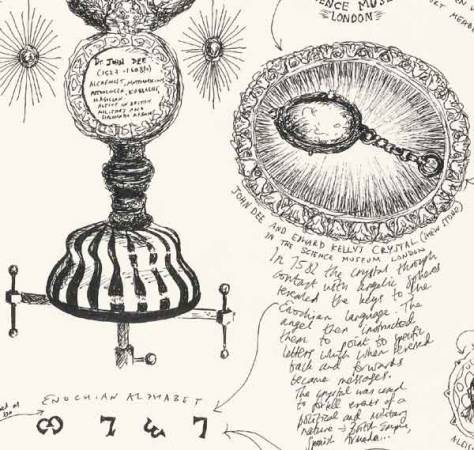 ENCE MUSE
LONDON
Dr. JOHN DEE
(1527 - 1608/9)
ALCHEMIST,
ASTROLOGER, KABBALIST,
MAGICIAN
JOHN DEE AND EDWARD KELLY'S CRYSTAL (SHEW STONE)
IN THE SCIENCE MUSEUM LONDON
In 1582 the crystal through
contact with angelic spheres
revealed the keys to the
Enochian language. The
angel then instructed
them to point to specific
letters which when reversed
back and forwards
became messages.
The crystal was used
to foretell events of a
political and military
nature
Spanish Armada...
ENOCHIAN ALPHABET